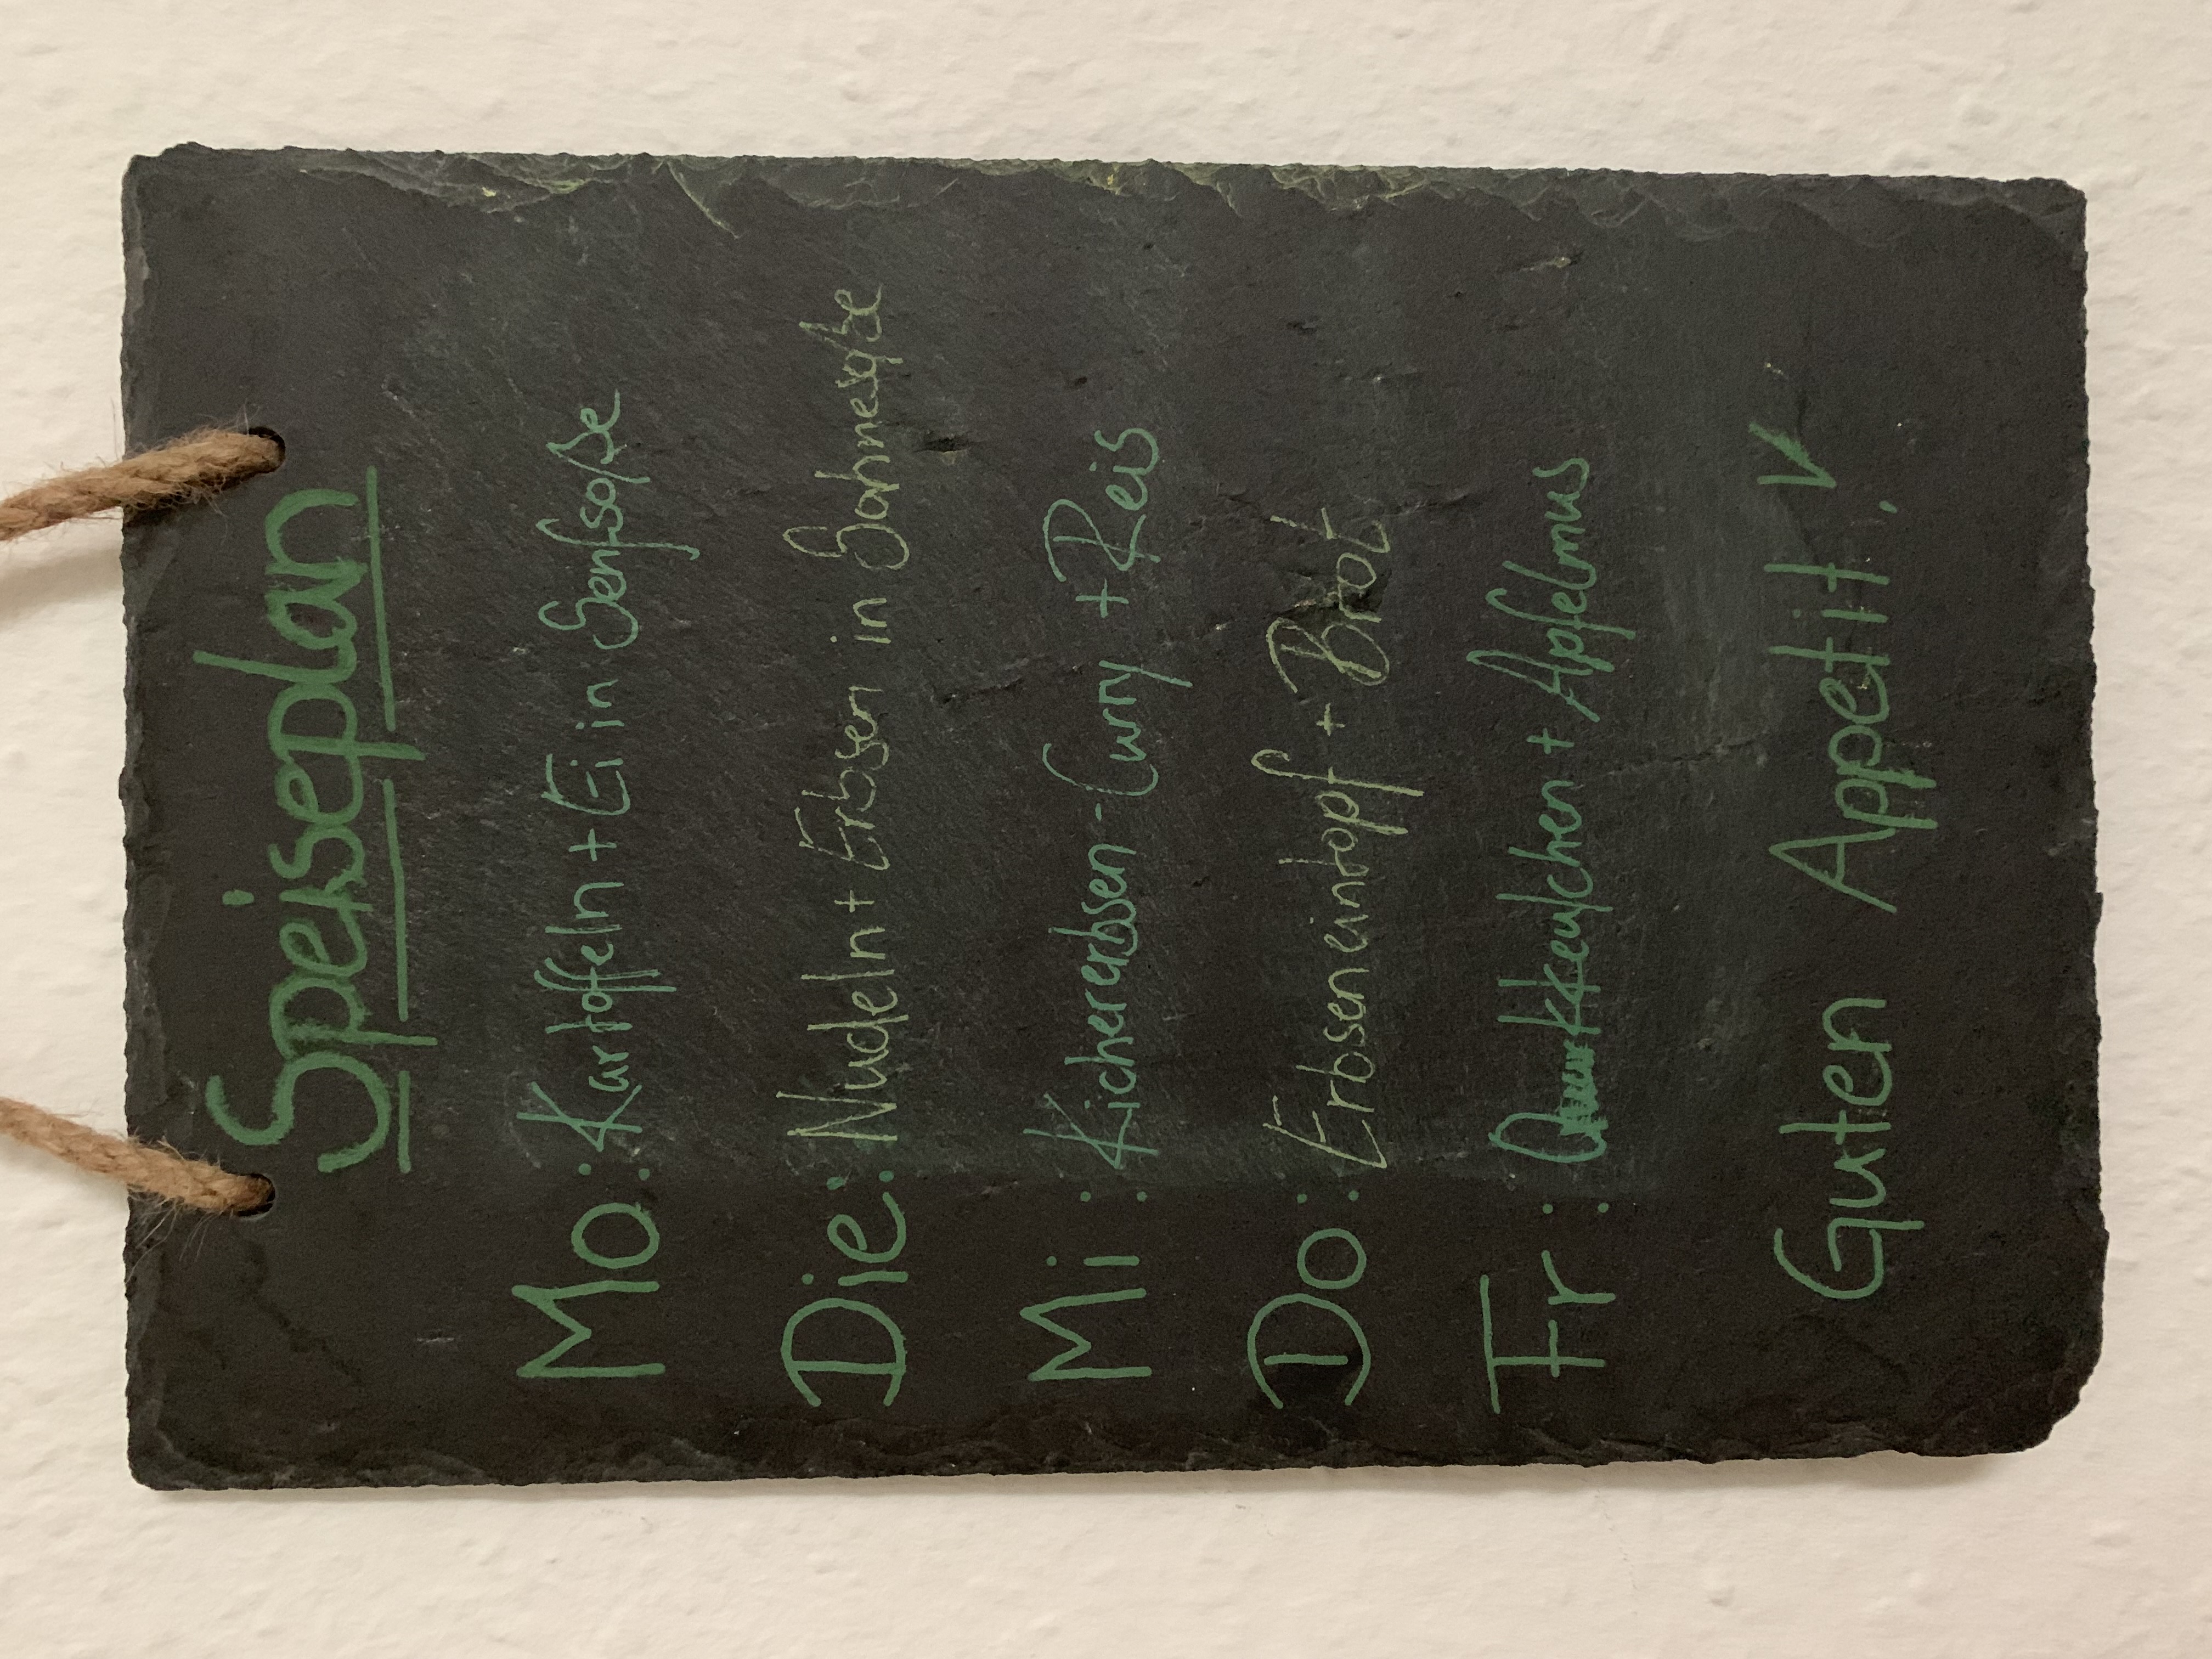 Speiseplan
Mo: Kartoffeln + Ei in Senfsoße
Die: Nudeln + Erbsen in Sahnesoße
Mi: Kichererbsen-Curry + Reis
Do: Erbseneintopf + Brot
Fr: Quarkkeulchen + Apfelmus
Guten Appetit!